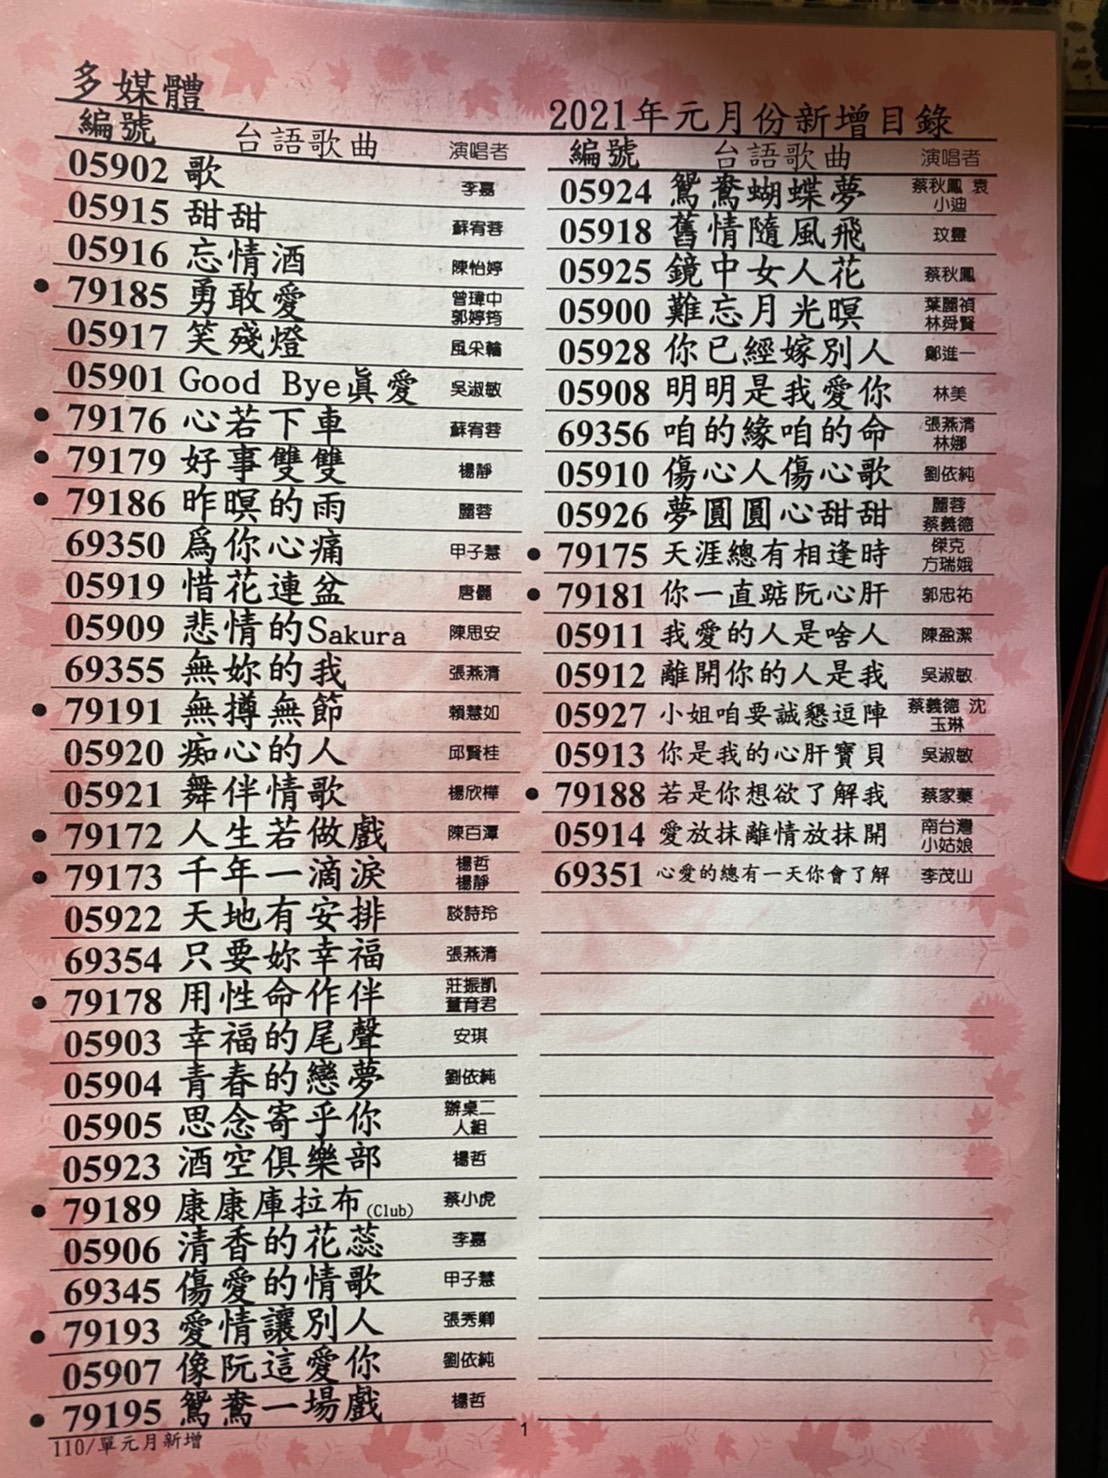 多媒體
2021年元月份新增目錄
編號 台語歌曲 演唱者
05902 歌 李嘉
05915 甜甜 蘇宥蓉
05916 忘情酒 陳怡婷
● 79185 勇敢愛 曾瑋中 郭婷筠
05917 笑殘燈 風采輪
05901 Good Bye真愛 吳淑敏
● 79176 心若下車 蘇宥蓉
● 79179 好事雙雙 楊靜
● 79186 昨暝的雨 麗蓉
69350 為你心痛 甲子慧
05919 惜花連盆 唐儷
05909 悲情的Sakura 陳思安
69355 無妳的我 張燕清
● 79191 無撙無節 賴慧如
05920 痴心的人 邱賢桂
05921 舞伴情歌 楊欣樺
● 79172 人生若做戲 陳百潭
● 79173 千年一滴淚 楊哲 楊靜
05922 天地有安排 談詩玲
69354 只要妳幸福 張燕清
● 79178 用性命作伴 莊振凱 董育君
05903 幸福的尾聲 安琪
05904 青春的戀夢 劉依純
05905 思念寄乎你 辦桌二人組
05923 酒空俱樂部 楊哲
● 79189 康康庫拉布(Club) 蔡小虎
05906 清香的花蕊 李嘉
69345 傷愛的情歌 甲子慧
● 79193 愛情讓別人 張秀卿
05907 像阮這愛你 劉依純
● 79195 鴛鴦一場戲 楊哲
編號 台語歌曲 演唱者
05924 鴛鴦蝴蝶夢 蔡秋鳳 袁小迪
05918 舊情隨風飛 玟靈
05925 鏡中女人花 蔡秋鳳
05900 難忘月光暝 葉麗禎 林舜賢
05928 你已經嫁別人 鄭進一
05908 明明是我愛你 林美
69356 咱的緣咱的命 張燕清 林娜
05910 傷心人傷心歌 劉依純
05926 夢圓圓心甜甜 麗蓉 蔡義德
● 79175 天涯總有相逢時 傑克 方瑞娥
● 79181 你一直踮阮心肝 郭忠祐
05911 我愛的人是啥人 陳盈潔
05912 離開你的人是我 吳淑敏
05927 小姐咱要誠懇逗陣 蔡義德 沈玉琳
05913 你是我的心肝寶貝 吳淑敏
● 79188 若是你想欲了解我 蔡家蓁
05914 愛放抹離情放抹開 南台灣小姑娘
69351 心愛的總有一天你會了解 李茂山
110/單元月新增
1